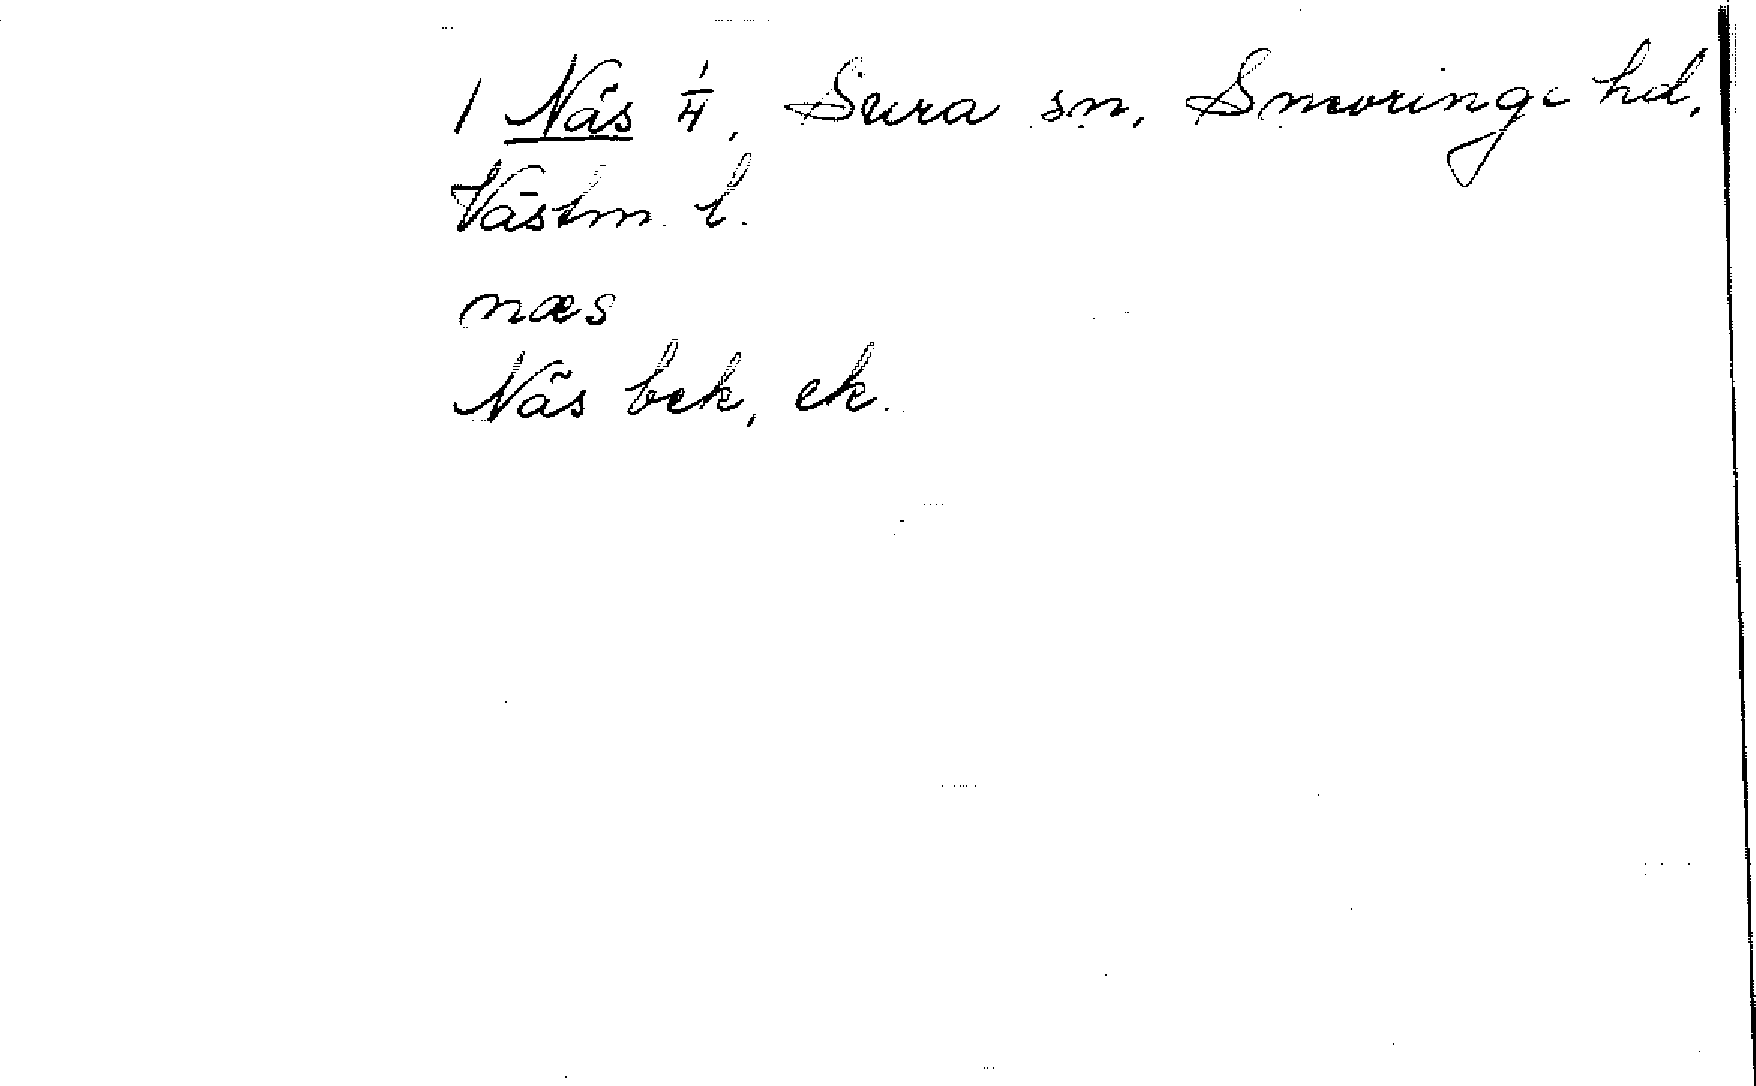 1 Näs 1/4, Sura sn, Snevringe hd,
Västm. l.
næs
Näs bek, ek.